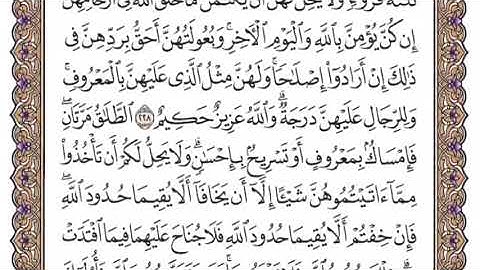 ثَلَٰثَةَ قُرُوٓءٖۚ وَلَا يَحِلُّ لَهُنَّ أَن يَكۡتُمۡنَ مَا خَلَقَ ٱللَّهُ فِيٓ أَرۡحَامِهِنَّ
إِن كُنَّ يُؤۡمِنَّ بِٱللَّهِ وَٱلۡيَوۡمِ ٱلۡأٓخِرِۚ وَبُعُولَتُهُنَّ أَحَقُّ بِرَدِّهِنَّ فِي
ذَٰلِكَ إِنۡ أَرَادُوٓاْ إِصۡلَٰحٗاۚ وَلَهُنَّ مِثۡلُ ٱلَّذِي عَلَيۡهِنَّ بِٱلۡمَعۡرُوفِۚ
وَلِلرِّجَالِ عَلَيۡهِنَّ دَرَجَةٞۗ وَٱللَّهُ عَزِيزٌ حَكِيمٌ ٢٢٨ ٱلطَّلَٰقُ مَرَّتَانِۖ
فَإِمۡسَاكُۢ بِمَعۡرُوفٍ أَوۡ تَسۡرِيحُۢ بِإِحۡسَٰنٖۗ وَلَا يَحِلُّ لَكُمۡ أَن تَأۡخُذُواْ
مِمَّآ ءَاتَيۡتُمُوهُنَّ شَيۡـًٔا إِلَّآ أَن يَخَافَآ أَلَّا يُقِيمَا حُدُودَ ٱللَّهِۖ
فَإِنۡ خِفۡتُمۡ أَلَّا يُقِيمَا حُدُودَ ٱللَّهِ فَلَا جُنَاحَ عَلَيۡهِمَا فِيمَا ٱفۡتَدَتۡ